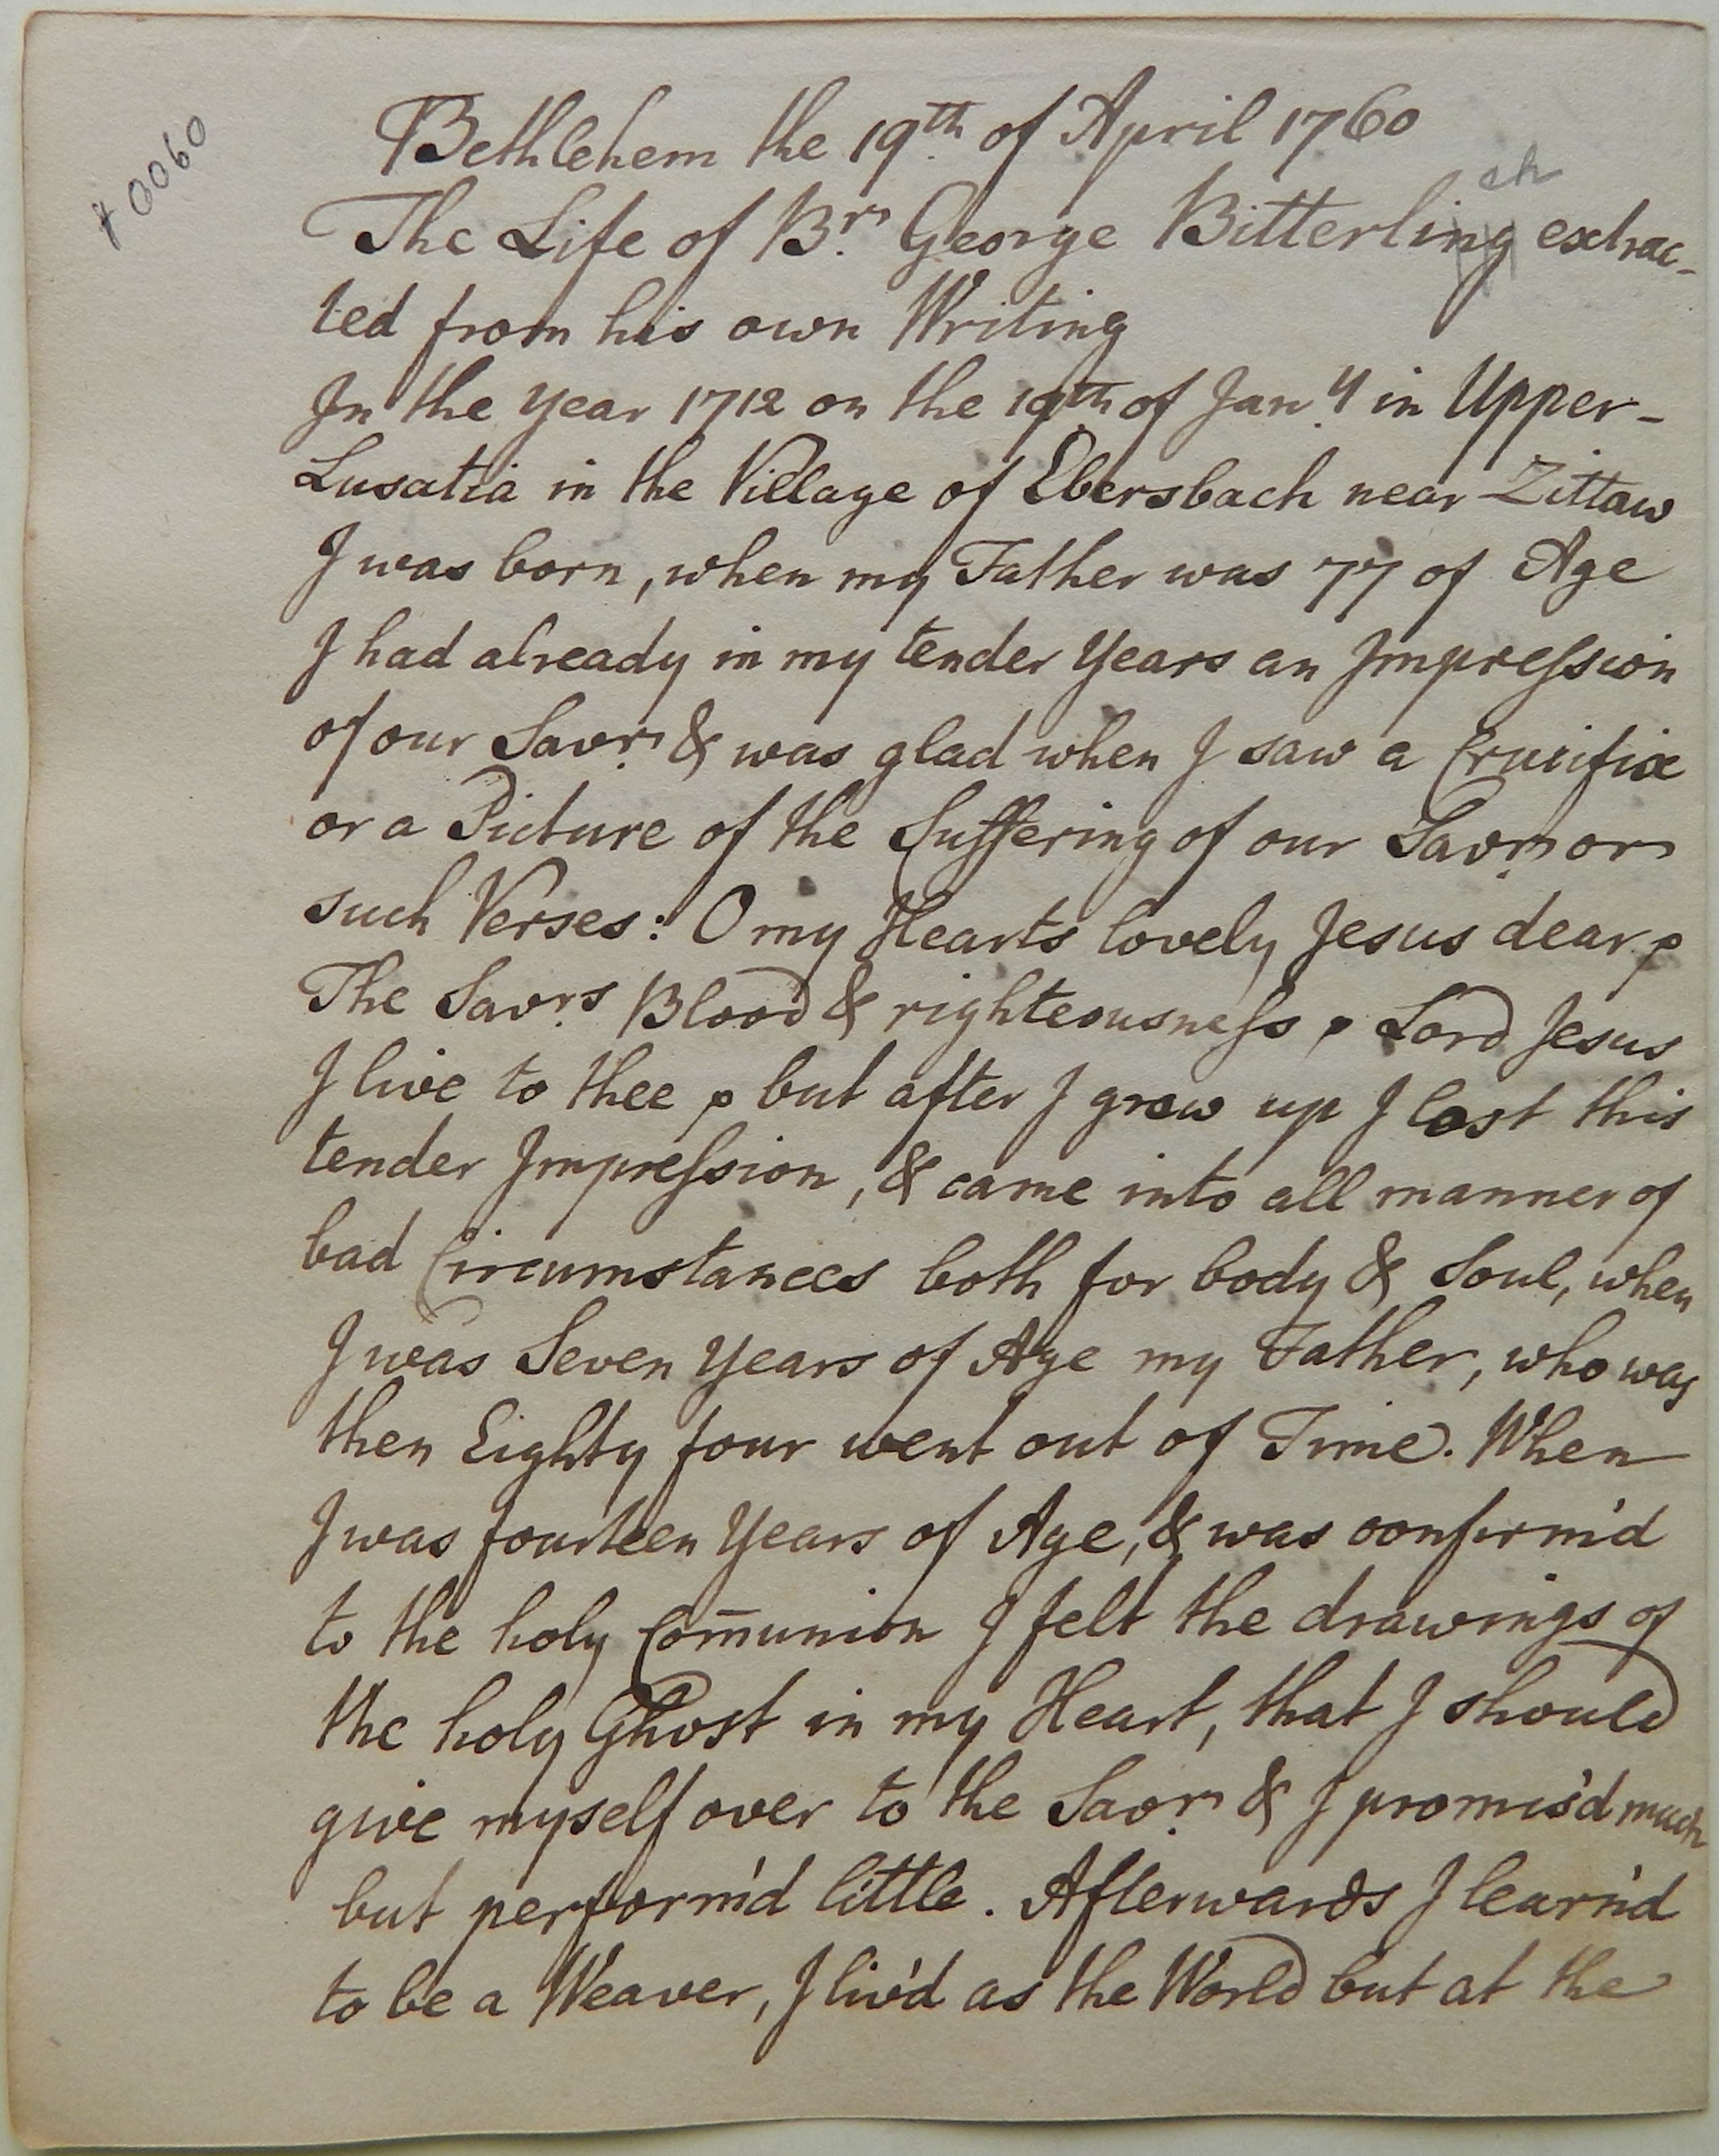 † 0060
Bethlehem the 19th. of April 1760
ch
The Life of Br. George Bitterling extrac-
ted from his own Writing
In the year 1712 on the 19th of Jan.y in Upper-
Lusatia in the Village of Ebersbach near Zittaw
I was born, when my Father was 77 of Age
I had already in my tender Years an Impreſsion
of our Savr. & was glad when I saw a Crucifix
or a Picture of the Suffering of our Savr. or
such Verses: O my Hearts lovely Jesus dear p
The Savrs. Blood & righteousneſs p Lord Jesus
I live to thee p but after I grow up I lost this
tender Impreſsion, & came into all manner of
bad Circumstances both for body & Soul, when
I was Seven Years of Age my Father, who was
then Eighty four went out of Time. When
I was fourteen Years of Age, & was confirm'd
to the holy Com̄union I felt the drawings of
the holy Ghost in my Heart, that I should
give myself over to the Savr. & I promis'd much
but perform'd little. Afterwards I learn'd
to be a Weaver, I liv'd as the World but at the